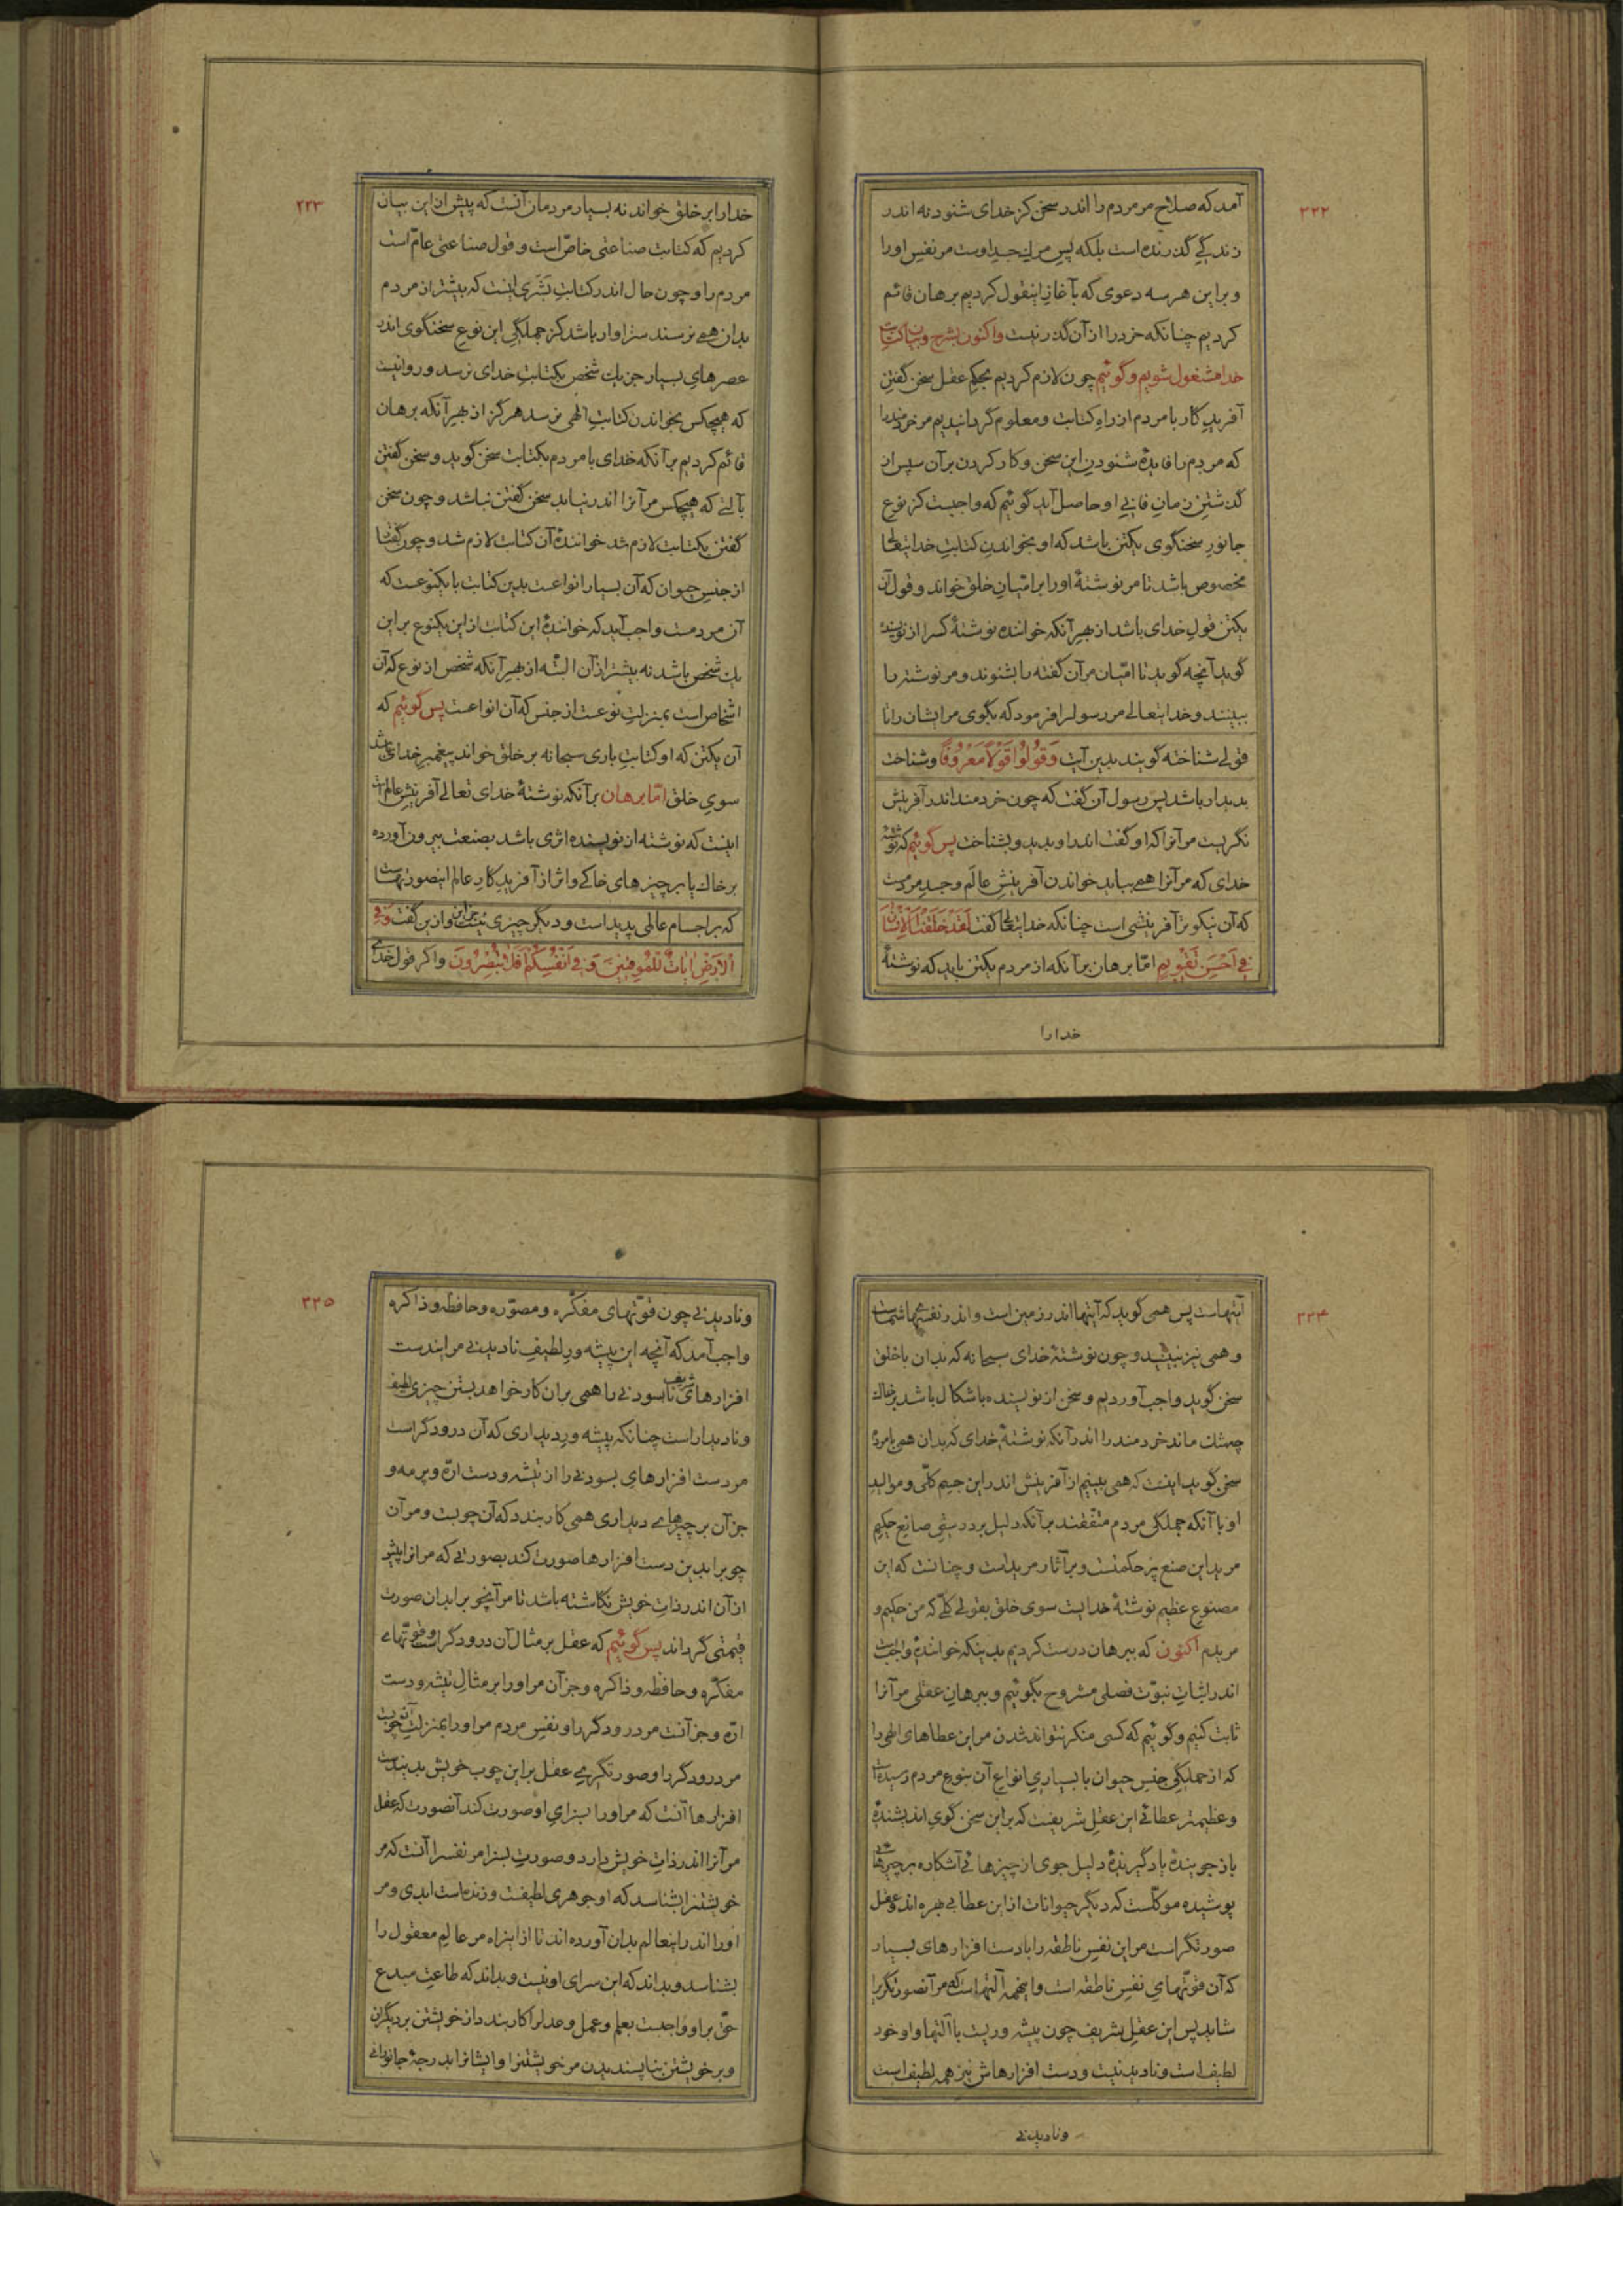 ۲۲۲
آمد که صلاح مر مردم را اندر سخن کز خدای شنود نه اندر
زندگی گذرنده است بلکه پس مرگ جسد اوست مر نفس او را
و بر این هر سه دعوی که بآغاز اینقول کردیم برهان قائم
کردیم چنانکه خرد را از آن گذر نیست و اکنون بشرح و بیان کتابت
خدا مشغول شویم و گوئیم چون لازم کردیم بحکم عقل سخن گفتن
آفریدگار با مردم از راه کتابت و معلوم گردانیدیم مر خردمند را
که مردم را فایدهٔ شنودن این سخن و کار کردن بر آن سپس از
گذشتن زمان فانی او حاصل آید گوئیم که واجبست کز نوع
جانور سخنگوی یکتن باشد که او بخواندن کتابت خدایتعالی
مخصوص باشد تا مر نوشتهٔ او را بر امّیان خلق خواند و قول آن
یکتن قول خدای باشد از بهر آنکه خواننده نوشتهٔ کسرا از نویسنده
گوید آنچه گوید تا امّیان مر آن گفته را بشنوند و مر نوشته را
ببینند و خدایتعالی مر رسولرا فرمود که بگوی مر ایشان را تا
قولی شناخته گویند بدین آیت وَقُولُوا قَوْلاً مَعْرُوفًا و شناخت
بدیدار باشد پس رسول آن گفت که چون خردمند اندر آفرینش
نگریست مر آنرا که او گفت اندر او بدید و بشناخت پس گوئیم که نوشتهٔ
خدای که مر آنرا همی بباید خواندن آفرینش عالم و جسد مردمست
که آن نیکوتر آفرینشی است چنانکه خدایتعالی گفت لَقَدْ خَلَقْنَا الْاِنْسَانَ
فِی اَحْسَنِ تَقْوِیمٍ امّا برهان بر آنکه از مردم یکتن باید که نوشتهٔ
خدا را
۲۲۳
خدا را بر خلق خواند نه بسیار مردمان آنست که پیش از این بیان
کردیم که کتابت صناعتی خاصّ است و قول صناعتی عامّ است
مردم را و چون حال اندر کتابت بَشَری اینست که بیشتر از مردم
بدان همی نرسند سزاوار باشد کز جملگی این نوع سخنگوی اندر
عصرهای بسیار جز یک شخص بکتابت خدای نرسد و روا نیست
که هیچکس بخواندن کتابت الهی نرسد هرگز از بهر آنکه برهان
قائم کردیم بر آنکه خدای با مردم بکتابت سخن گوید و سخن گفتن
بآلتی که هیچکس مر آنرا اندر نیابد سخن گفتن نباشد و چون سخن
گفتن بکتابت لازم شد خوانندهٔ آن کتابت لازم شد و چون گفتن
از جنس حیوان که آن بسیار انواعست بدین کتابت با یکنوعست که
آن مردمست واجب آید که خوانندهٔ این کتابت از این یکنوع بر این
یک شخص باشد نه بیشتر از آن البتّه از بهر آنکه شخص از نوع که آن
اشخاص است بمنزلت نوعست از جنس که آن انواعست پس گوئیم که
آن یکتن که او کتابت باری سبحانه بر خلق خواند پیغمبر خدای باشد
سوی خلق امّا برهان بر آنکه نوشتهٔ خدای تعالی آفرینش عالم است
اینست که نوشته از نویسنده اثری باشد بصنعت بیرون آورده
بر خاک یا بر چیزهای خاکی و اثر از آفریدگار عالم اینصورتهاست
که بر اجسام عالمی پدید است و دیگر چیزی نیست جز این و از این گفت وَفِی
الْاَرْضِ اٰیَاتٌ لِلْمُوقِنِینَ وَفِی اَنْفُسِکُمْ اَفَلَا تُبْصِرُونَ و اگر قول خدای
۲۲۴
آیتهاست پس همی گوید که آیتها اندر زمین است و اندر نفسهای شماست
و همی نبینید و چون نوشتهٔ خدای سبحانه که بدان با خلق
سخن گوید واجب آوردیم و سخن از نویسنده باشکال باشد بر خاک
چه شک ماند خردمند را اندر آنکه نوشتهٔ خدای که بدان همی با مردم
سخن گوید اینست که همی بینیم از آفرینش اندر این جسم کلّی و موالید
او با آنکه جملگی مردم متّفقند بر آنکه دلیل بر درستی صانع حکیم
مرید این صنع پر حکمتست و بر آثار مرید است و چنانست که این
مصنوع عظیم نوشتهٔ خدایست سوی خلق بقولی کلّی که من حکیم و
مریدم اکنون که ببرهان درست کردیم بدینکه خوانندهٔ واجبست
اندر اثبات نبوّت فصلی مشروح بگوئیم و ببرهان عقلی مر آنرا
ثابت کنیم و گوئیم که کسی منکر نتواند شدن مر این عطاهای الهی را
که از جملگی جنس حیوان با بسیاری انواع آن بنوع مردم رسیده است
و عظیمتر عطائی این عقل شریفست که بر این سخن گوی اندیشندهٔ
باز جویندهٔ یادگیرندهٔ دلیل جوی از چیزهائی آشکاره بر چیزهائی
پوشیده موکّلست که دیگر حیوانات از این عطا بی بهره اند و عقل
صورتگر است مر این نفس ناطقه را با دست افزارهای بسیار
که آن قوّتهای نفس ناطقه است و اینهمه آلتهاست که مر آنصورتگر را
شاید پس این عقل شریف چون پیشه وریست با آلتها و او خود
لطیف است و نادیدنیست و دست افزارهاش نیز همه لطیف است
و نادیدنی
۲۲۵
و نادیدنی چون قوّتهای مفکّره و مصوّره و حافظه و ذاکره
واجب آمد که آنچه این پیشه ور لطیف نادیدنی مر ایندست
افزارهای شریف نابسودنی را همی بر آن کار خواهد بستن چیزی لطیف
و نادیدار است چنانکه پیشه ور دیداری که آن درودگر است
مر دست افزارهای بسودنی را از تیشه و دست ارّه و برمه و
جز آن بر چیزهای دیداری همی کار بندد که آن چوبست و مر آن
چوب را بدین دست افزارها صورت کند بصورتی که مر آنرا پیش
از آن اندر ذات خویش نگاشته باشد تا مر آنچوب را بدان صورت
قیمتی گرداند پس گوئیم که عقل بر مثال آن درودگر است و قوّتهای
مفکّره و حافظه و ذاکره و جز آن مر او را بر مثال تیشه و دست
ارّه و جز آنست مر درودگر را و نفس مردم مر او را بمنزلت آنچوبست
مر درودگر را و صورتگری عقل بر این چوب خویش بدیندست
افزارها آنست که مر او را بسزای او صورت کند آنصورت که عقل
مر آنرا اندر ذات خویش دارد و صورت بسزا مر نفس را آنست که مر
خویشتن را بشناسد که او جوهری لطیفست و زنده است ابدی و مر
او را اندر اینعالم بدان آورده اند تا از اینراه مر عالم معقول را
بشناسد و بداند که این سرای او نیست و بداند که طاعت مبدع
حقّ بر او واجبست بعلم و عمل و عدل را کار بندد از خویشتن بر دیگران
و بر خویشتن بناپسندیدن مر خویشتن را و ایشانرا بدرجهٔ جانورانی